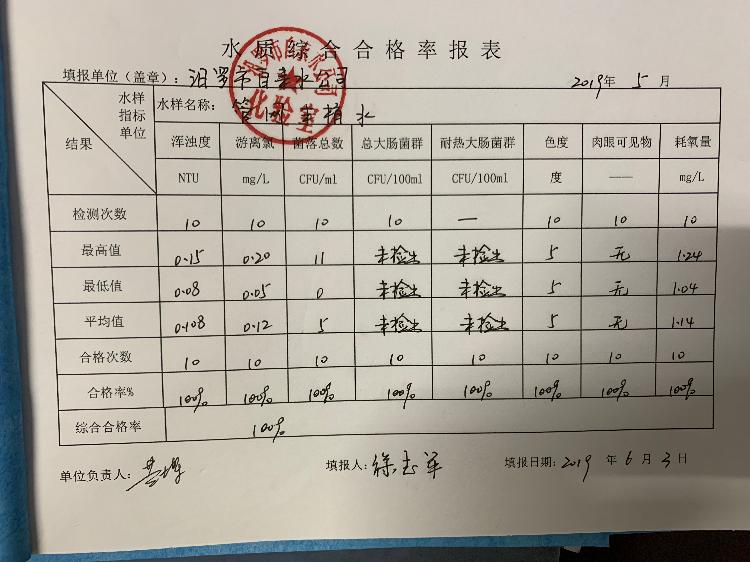 水质综合合格率报表
填报单位（盖章）：汨罗市自来水公司 2019年 5 月
水样 指标 单位 结果 水样名称：管网末梢水
浑浊度 游离氯 菌落总数 总大肠菌群 耐热大肠菌群 色度 肉眼可见物 耗氧量
NTU mg/L CFU/ml CFU/100ml CFU/100ml 度 —— mg/L
检测次数 10 10 10 10 — 10 10 10
最高值 0.15 0.20 11 未检出 未检出 5 无 1.24
最低值 0.08 0.05 0 未检出 未检出 5 无 1.04
平均值 0.108 0.12 5 未检出 未检出 5 无 1.14
合格次数 10 10 10 10 10 10 10 10
合格率% 100% 100% 100% 100% 100% 100% 100% 100%
综合合格率 100%
单位负责人： 填报人：徐志军 填报日期：2019 年 6 月 3 日
化验室